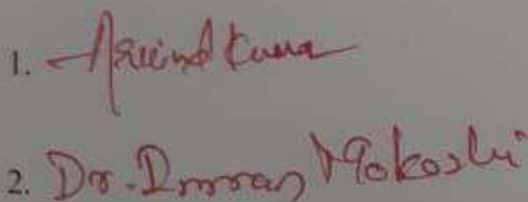 1. Arvind Kumar
2. Dr. Imran Mokashi